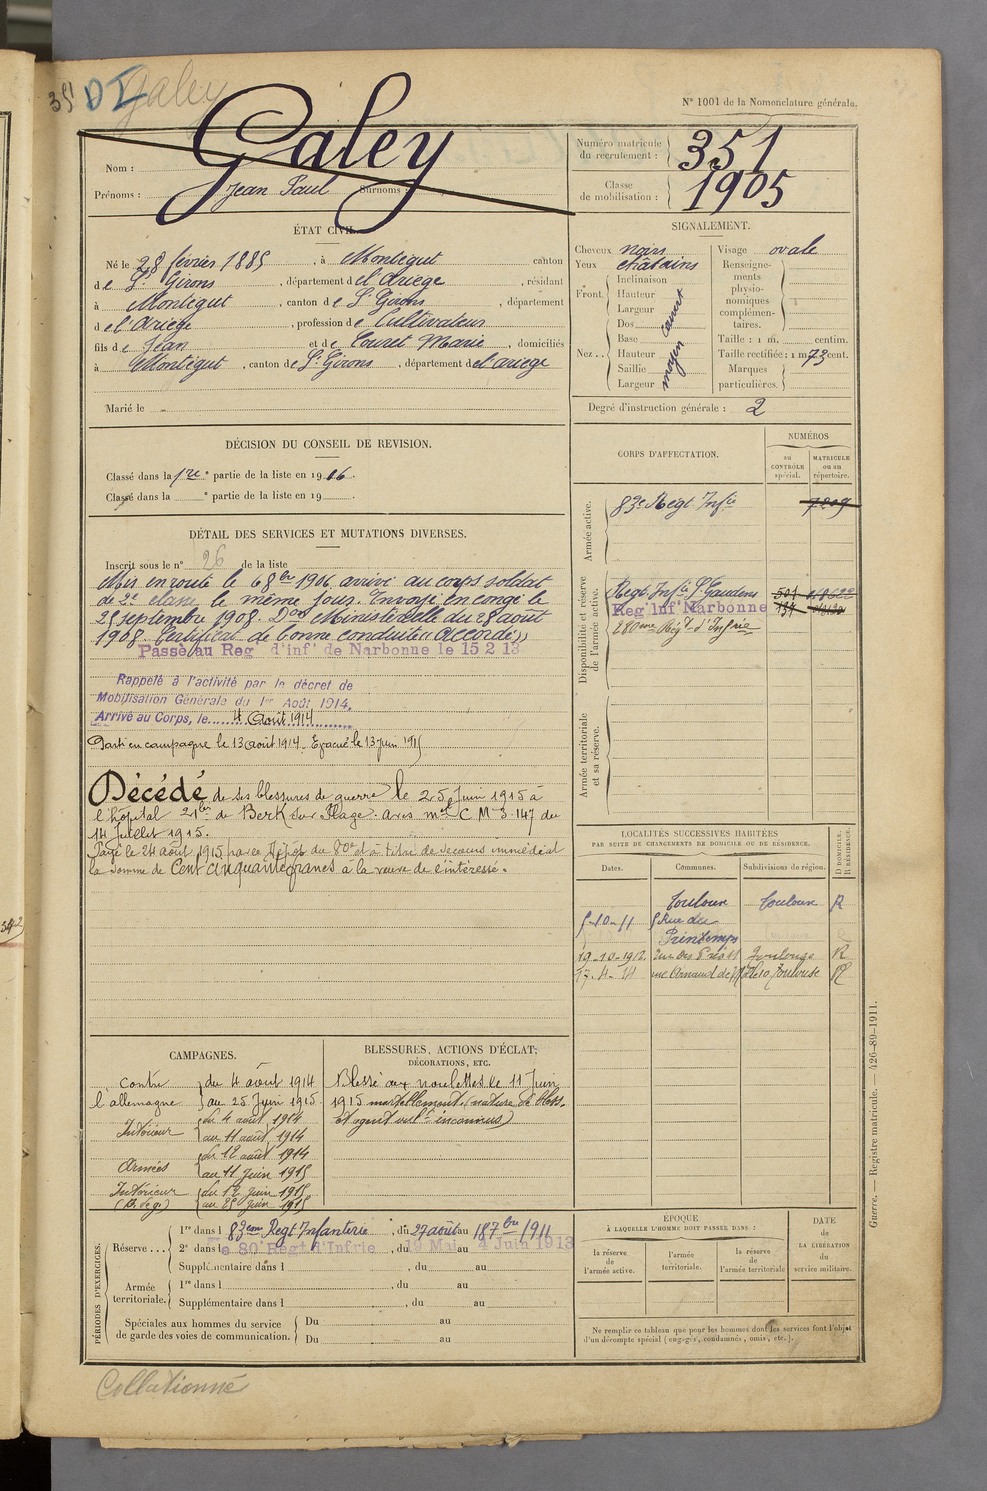 351 DI Galey
N° 1001 de la Nomenclature générale.
Nom : Galey
Prénoms : Jean Paul Surnoms :
Numéro matricule du recrutement : 351
Classe de mobilisation : 1905
ÉTAT CIVIL.
Né le 28 février 1885, à Montégut canton
de St Girons, département de l'Ariège, résidant
à Montégut, canton de St Girons, département
de l'Ariège, profession de Cultivateur
fils de Jean et de Couret Marie, domiciliés
à Montégut, canton de St Girons, département de l'Ariège
Marié le
SIGNALEMENT.
Cheveux noirs
Yeux châtains
Front. Inclinaison
Hauteur
Largeur
couvert
Nez.. Dos
Base
Hauteur
Saillie
Largeur
moyen
Visage ovale
Renseignements physionomiques complémentaires.
Taille : 1 m. centim.
Taille rectifiée : 1 m 73 cent.
Marques particulières.
Degré d'instruction générale : 2
DÉCISION DU CONSEIL DE REVISION.
Classé dans la 1re partie de la liste en 1906.
Classé dans la ° partie de la liste en 19 .
DÉTAIL DES SERVICES ET MUTATIONS DIVERSES.
Inscrit sous le n° 26 de la liste
Mis en route le 6 8bre 1906 arrivé au corps soldat
de 2e classe le même jour. Envoyé en congé le
28 septembre 1908. Don Ministérielle du 28 août
1908. Certificat de bonne conduite "Accordé"
Passé au Reg d'inft de Narbonne le 15 2 13
Rappelé à l'activité par le décret de
Mobilisation Générale du 1er Août 1914,
Arrivé au Corps, le 4 Août 1914
Parti en campagne le 13 août 1914. Evacué le 13 juin 1915
Décédé de ses blessures de guerre le 25 Juin 1915 à
l'hôpital de Berk sur Plage. avis mel C M S. 147 du
14 Juillet 1915.
Payé le 24 août 1915 par le Dépôt du 80e et à titre de secours immédiat
la somme de Cent cinquante francs à la veuve de l'intéressé.
CORPS D'AFFECTATION.
NUMÉROS
au CONTRÔLE spécial.
MATRICULE ou au répertoire.
Armée active.
83e Régt Infie 7209
Disponibilité et réserve de l'armée active.
Regt Infie St Gaudens 501
Reg Inf Narbonne 134
280ème Régt d'Infrie
Armée territoriale et sa réserve.
LOCALITÉS SUCCESSIVES HABITÉES
PAR SUITE DE CHANGEMENTS DE DOMICILE OU DE RÉSIDENCE.
Dates. Communes. Subdivisions de région. D DOMICILE. R RÉSIDENCE.
Toulouse Toulouse R
5-10-11 5 Rue du
Printemps
19-10-1912. Toulouse R
17.4.14 Toulouse R
CAMPAGNES.
contre l'allemagne du 4 août 1914
au 25 Juin 1915
Intérieur du 4 août 1914
au 11 août 1914
Armées du 12 août 1914
au 11 Juin 1915
Intérieur du 12 Juin 1915
(B. de g.) au 25 Juin 1915
BLESSURES, ACTIONS D'ÉCLAT,
DÉCORATIONS, ETC.
Blessé aux noulettes le 11 Juin
1915 mortellement. (nature de bless.
et agent vult inconnus)
PÉRIODES D'EXERCICES.
Réserve... 1re dans l 83ème Regt Infanterie, du 27 août au 18 7bre 1911
2e dans le 80e Régt d'Infrie, du 19 Mai au 4 Juin 1913
Supplémentaire dans l , du au
Armée territoriale. 1re dans l , du au
Supplémentaire dans l , du au
Spéciales aux hommes du service de garde des voies de communication. Du au
Du au
ÉPOQUE
À LAQUELLE L'HOMME DOIT PASSER DANS :
la réserve de l'armée active.
l'armée territoriale.
la réserve de l'armée territoriale
DATE de LA LIBÉRATION du service militaire.
Ne remplir ce tableau que pour les hommes dont les services font l'objet
d'un décompte spécial (engagés, condamnés, omis, etc.).
Guerre. — Registre matricule. — 426-89-1911.
Collationné